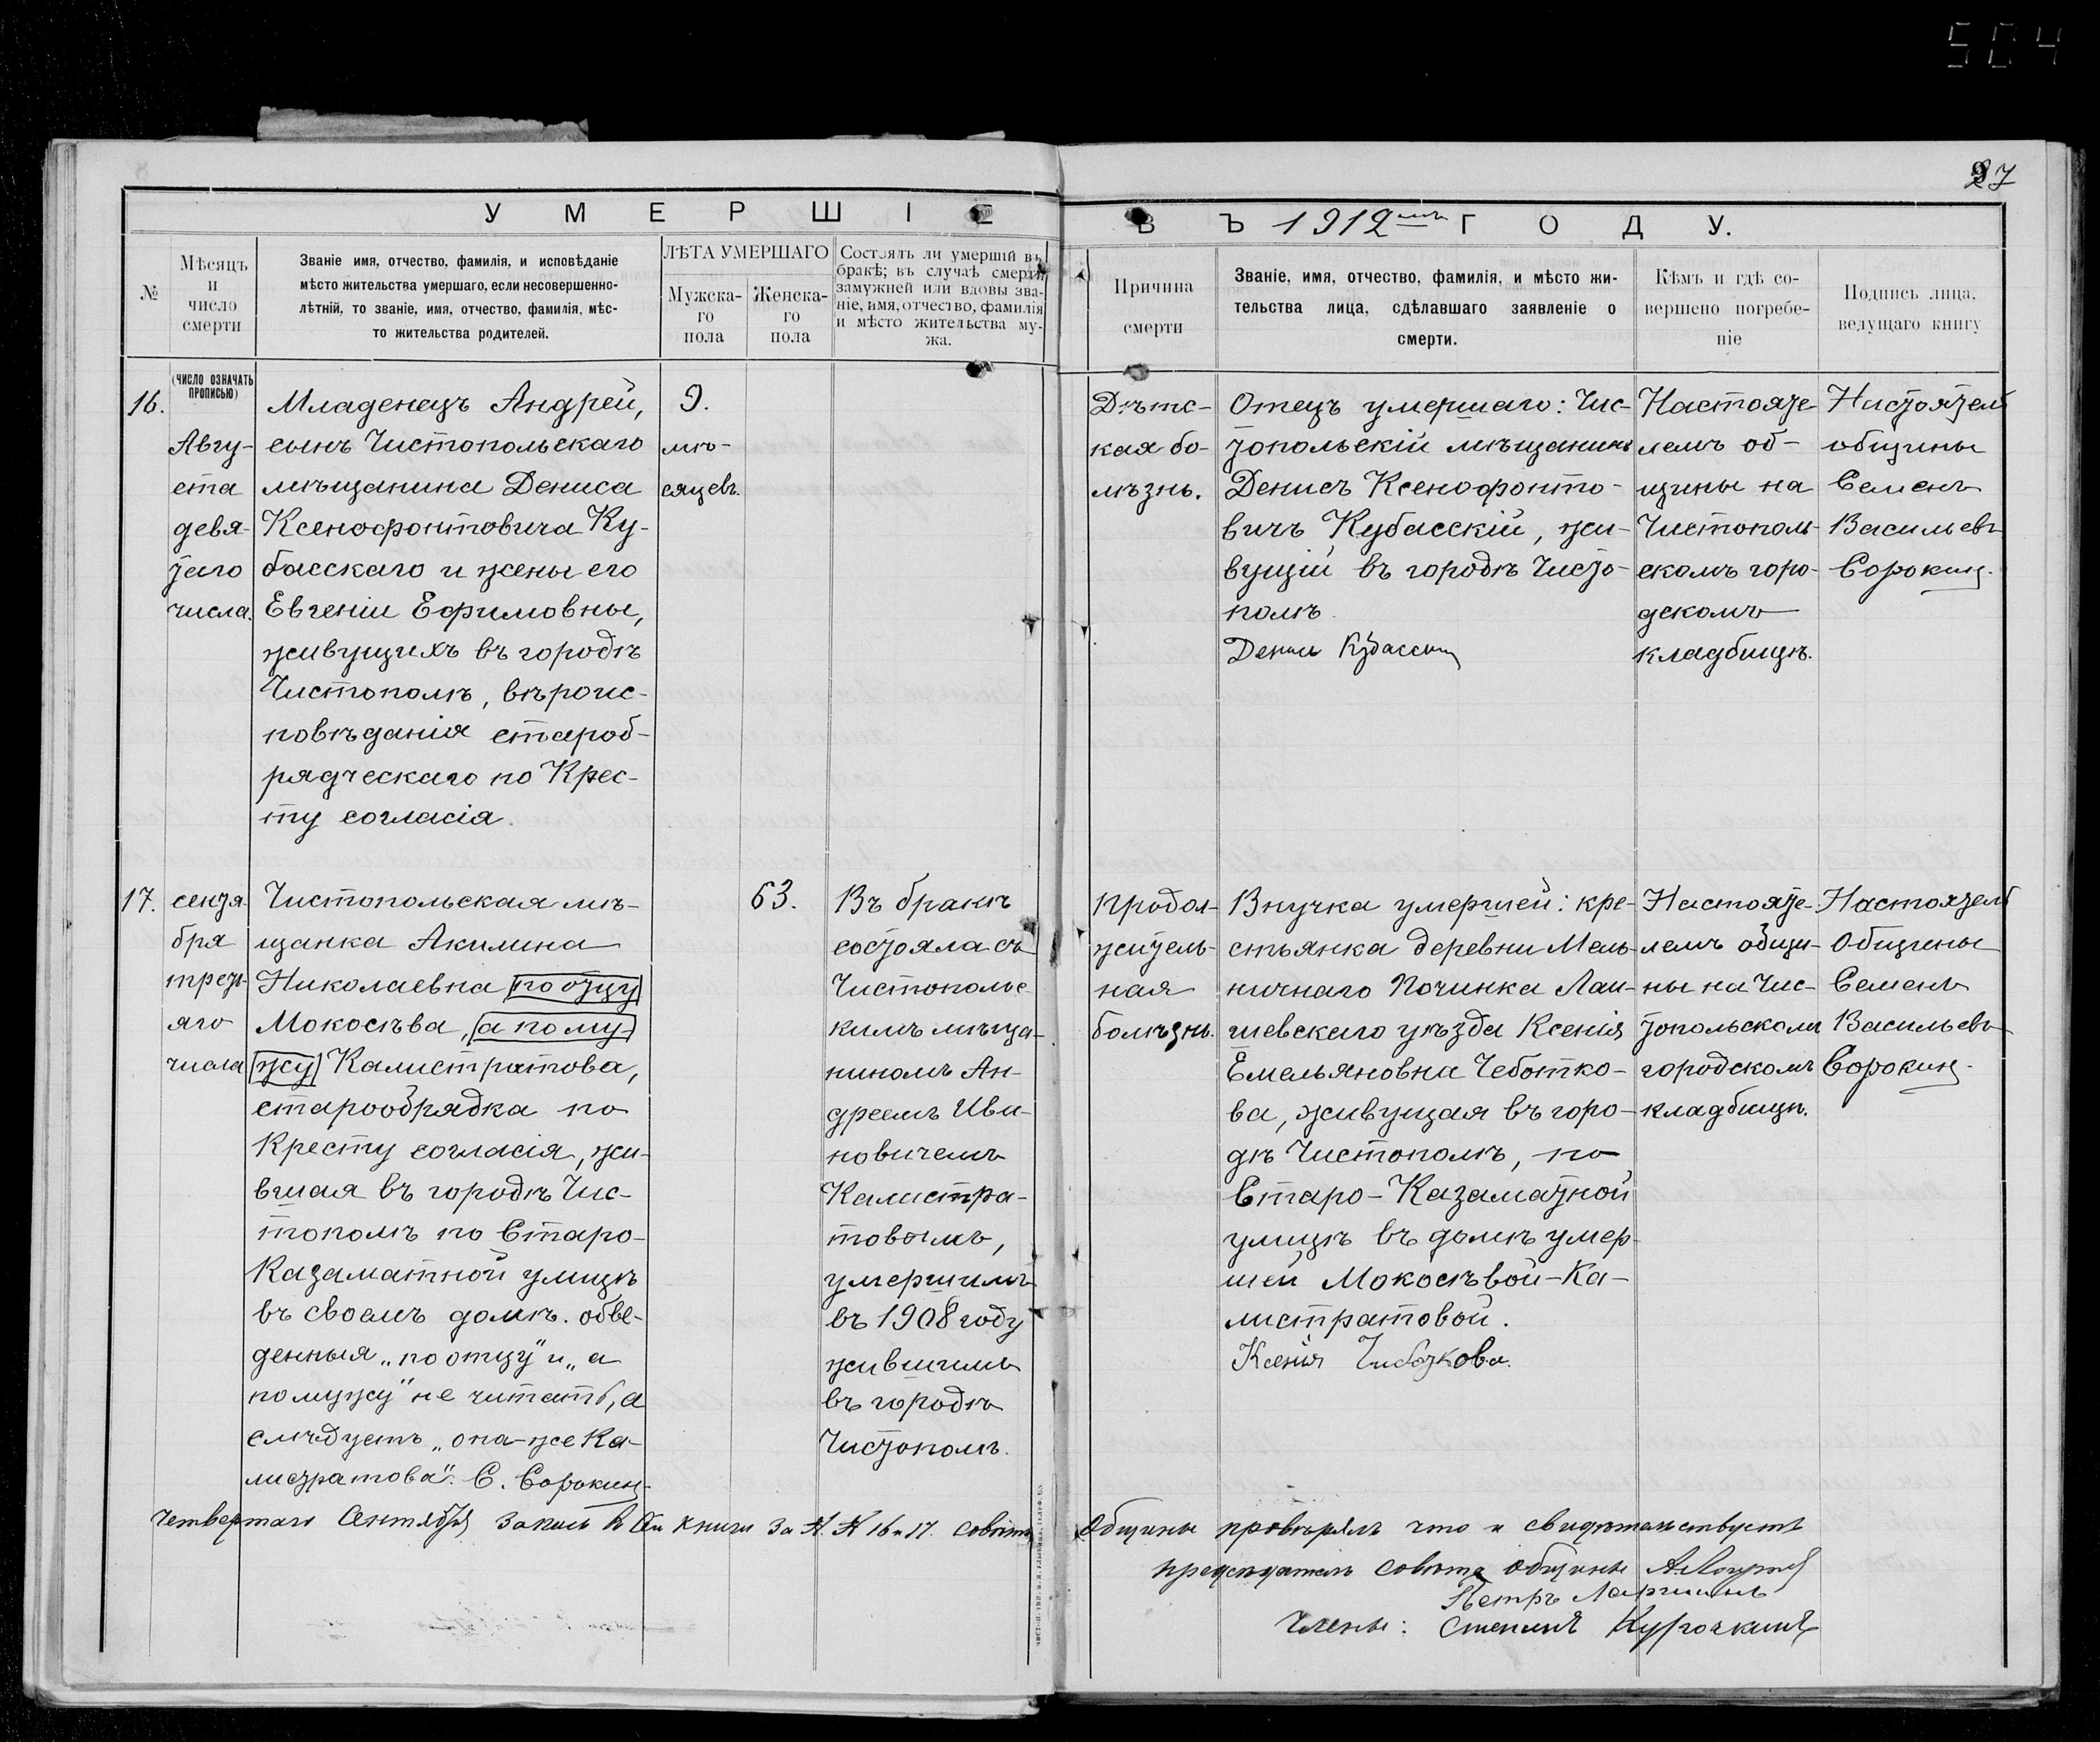 504
27
УМЕРШІЕ
ВЪ 1912мъ ГОДУ.
№
Мѣсяцъ
и
число
смерти
Званіе имя, отчество, фамилія, и исповѣданіе
мѣсто жительства умершаго, если несовершенно-
лѣтній, то званіе, имя, отчество, фамилія, мѣс-
то жительства родителей.
ЛѢТА УМЕРШАГО
Мужска-
го
пола
Женска-
го
пола
Состоялъ ли умершій въ
бракѣ; въ случаѣ смерти
замужней или вдовы зва-
ніе, имя, отчество, фамилія
и мѣсто жительства му-
жа.
Причина
смерти
Званіе, имя, отчество, фамилія, и мѣсто жи-
тельства лица, сдѣлавшаго заявленіе о
смерти.
Кѣмъ и гдѣ со-
вершено погребе-
ніе
Подпись лица,
ведущаго книгу
(ЧИСЛО ОЗНАЧАТЬ
ПРОПИСЬЮ)
16.
Авгу-
ста
девя-
таго
числа.
Младенецъ Андрей,
сынъ Чистопольскаго
мѣщанина Дениса
Ксенофонтовича Ку-
басскаго и жены его
Евгеніи Ефимовны,
живущихъ въ городѣ
Чистополѣ, вѣроис-
повѣданія староб-
рядческаго по Крес-
ту согласія.
9.
мѣ-
сяцевъ.
Дѣтс-
кая бо-
лѣзнь.
Отецъ умершаго: Чис-
топольскій мѣщанинъ
Денисъ Ксенофонто-
вичъ Кубасскій, жи-
вущій въ городѣ Чисто-
полѣ.
Денис Кубасскій
Настояте-
лемъ об-
щины на
Чистополь-
скомъ горо-
дскомъ
кладбищѣ.
Настоятель
общины
Семенъ
Васильевъ
Сорокинъ.
17.
сентя-
бря
треть-
яго
числа
Чистопольская мѣ-
щанка Акилина
Николаевна по отцу
Мокосѣва, а по му-
жу Калистратова,
старообрядка по
Кресту согласія, жи-
вшая въ городѣ Чис-
тополѣ по Старо-
Казаматной улицѣ
въ своемъ домѣ. обве-
денныя „по отцу" и „а
по мужу" не читать, а
слѣдуетъ „она-же Ка-
листратова". С. Сорокинъ.
63.
Въ бракѣ
состояла съ
Чистопольс-
кимъ мѣща-
ниномъ Ан-
дреемъ Ива-
новичемъ
Калистра-
товымъ,
умершимъ
въ 1908 году
жившимъ
въ городѣ
Чистополѣ.
продол-
житель-
ная
болѣзнь.
Внучка умершей: кре-
стьянка деревни Мель-
ничнаго Починка Лаи-
шевскаго уѣзда Ксенія
Емельяновна Чеботко-
ва, живущая въ горо-
дѣ Чистополѣ, по
Старо-Казаматной
улицѣ въ домѣ умер-
шей Мокосѣвой-Ка-
листратовой.
Ксенія Чиботкова.
Настояте-
лемъ общи-
ны на Чис-
топольскомъ
городскомъ
кладбищѣ.
Настоятель
Общины
Семенъ
Васильевъ
Сорокинъ.
Четвертаго Сентября запись книги за № № 16 и 17. Совѣтъ Общины провѣрялъ что и свидѣтельствуетъ
предсѣдатель Совѣта Общины
Петръ
Члены: Степанъ Курочкинъ